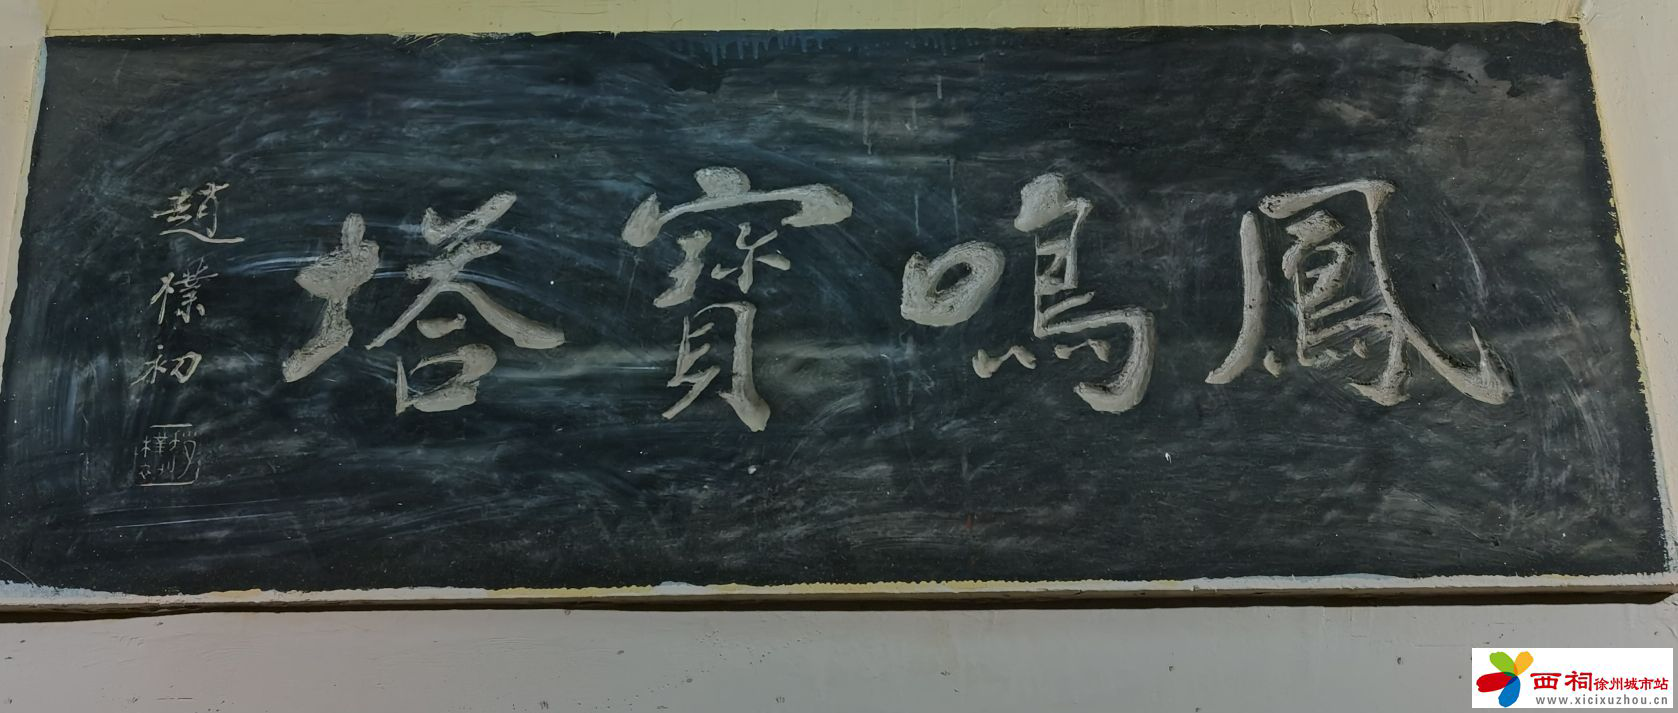 鳳鳴寶塔
趙樸初
西祠徐州城市站
www.xicixuzhou.cn